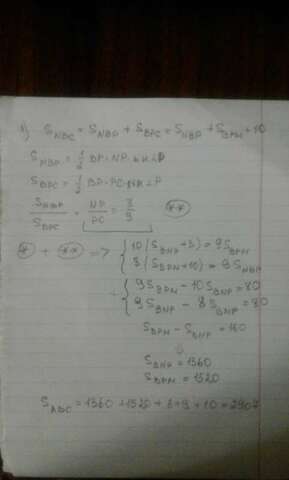 S_NBC = S_NBP + S_BPC = S_NBP + S_BPM + 10
S_NBP = 1/2 BP · NP · sin∠P
S_BPC = 1/2 BP · PC · sin∠P
S_NBP/S_BPC = NP/PC = 8/9 (**)
(*) + (**) => { 10(S_BNP + 8) = 9S_BPM
8(S_BPM + 10) = 9S_NBP
+ { 9S_BPM - 10S_BNP = 80
9S_BNP - 8S_BNP = 80
S_BPM - S_BNP = 160
S_BNP = 1360
S_BPM = 1520
S_ABC = 1360 + 1520 + 8 + 9 + 10 = 2907